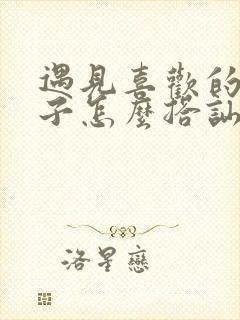 遇見喜歡的
子怎麼搭訕
洛星戀